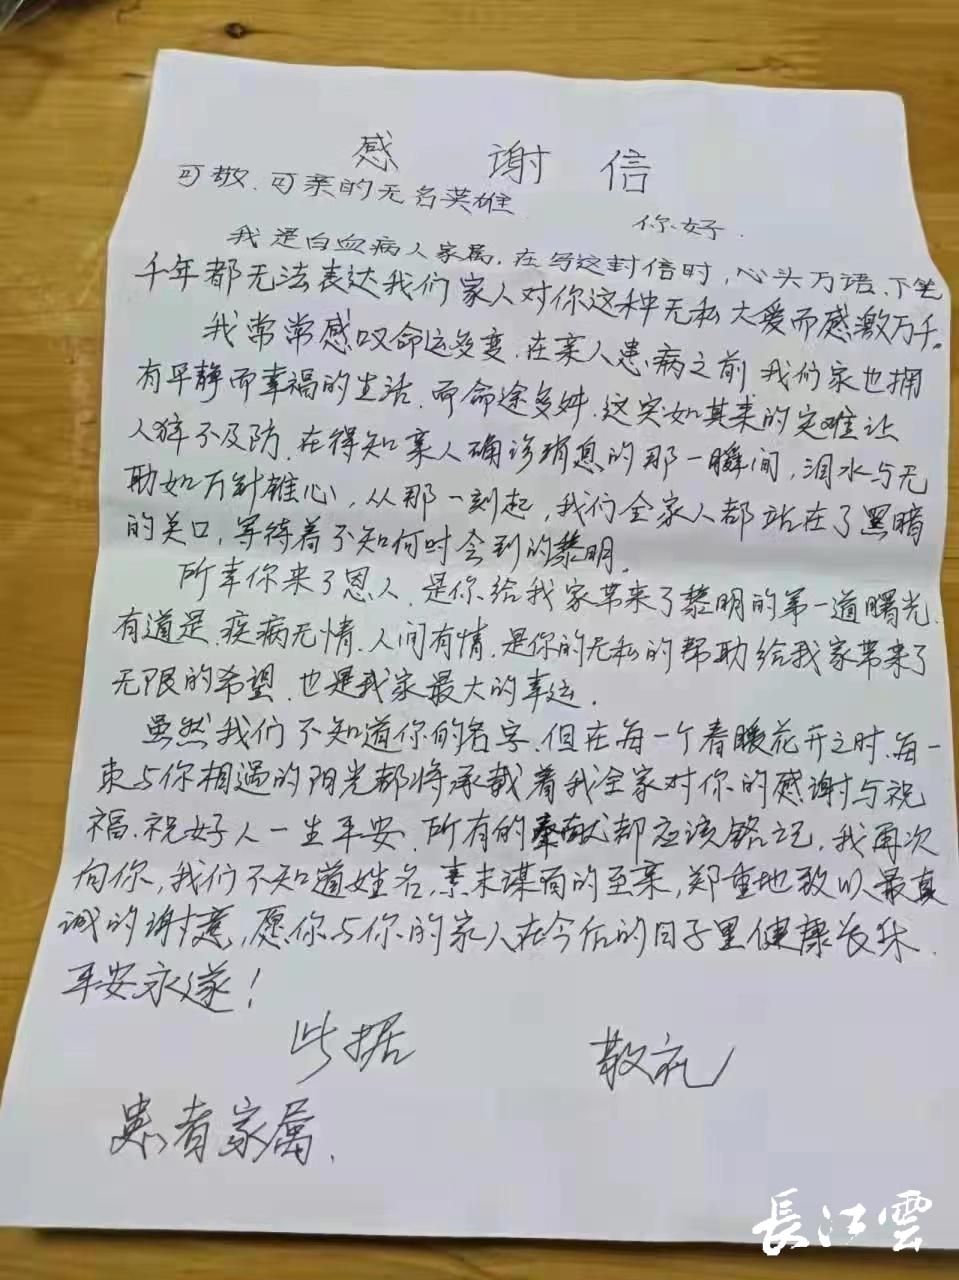 感谢信
可敬、可亲的无名英雄
你好.
我是白血病人家属,在写这封信时,心头万语、下笔
千年都无法表达我们家人对你这种无私大爱而感激万千。
我常常感叹命运多变、在亲人患病之前我们家也拥
有平静而幸福的生活、而命途多舛、这突如其来的灾难让
人猝不及防、在得知亲人确诊消息的那一瞬间,泪水与无
助如万针锥心,从那一刻起,我们全家人都站在了黑暗
的关口,等待着不知何时会到的黎明.
所幸你来了恩人、是你给我家带来了黎明的第一道曙光、
有道是、疾病无情、人间有情、是你的无私的帮助给我家带来了
无限的希望、也是我家最大的幸运.
虽然我们不知道你的名字、但在每一个春暖花开之时、每一
束与你相遇的阳光都将承载着我全家对你的感谢与祝
福、祝好人一生平安、所有的奉献都应该铭记,我再次
向你,我们不知道姓名,素未谋面的至亲,郑重地致以最真
诚的谢意,愿你与你的家人在今后的日子里健康长休、
平安永遂!
此据 敬礼
患者家属.
長江雲